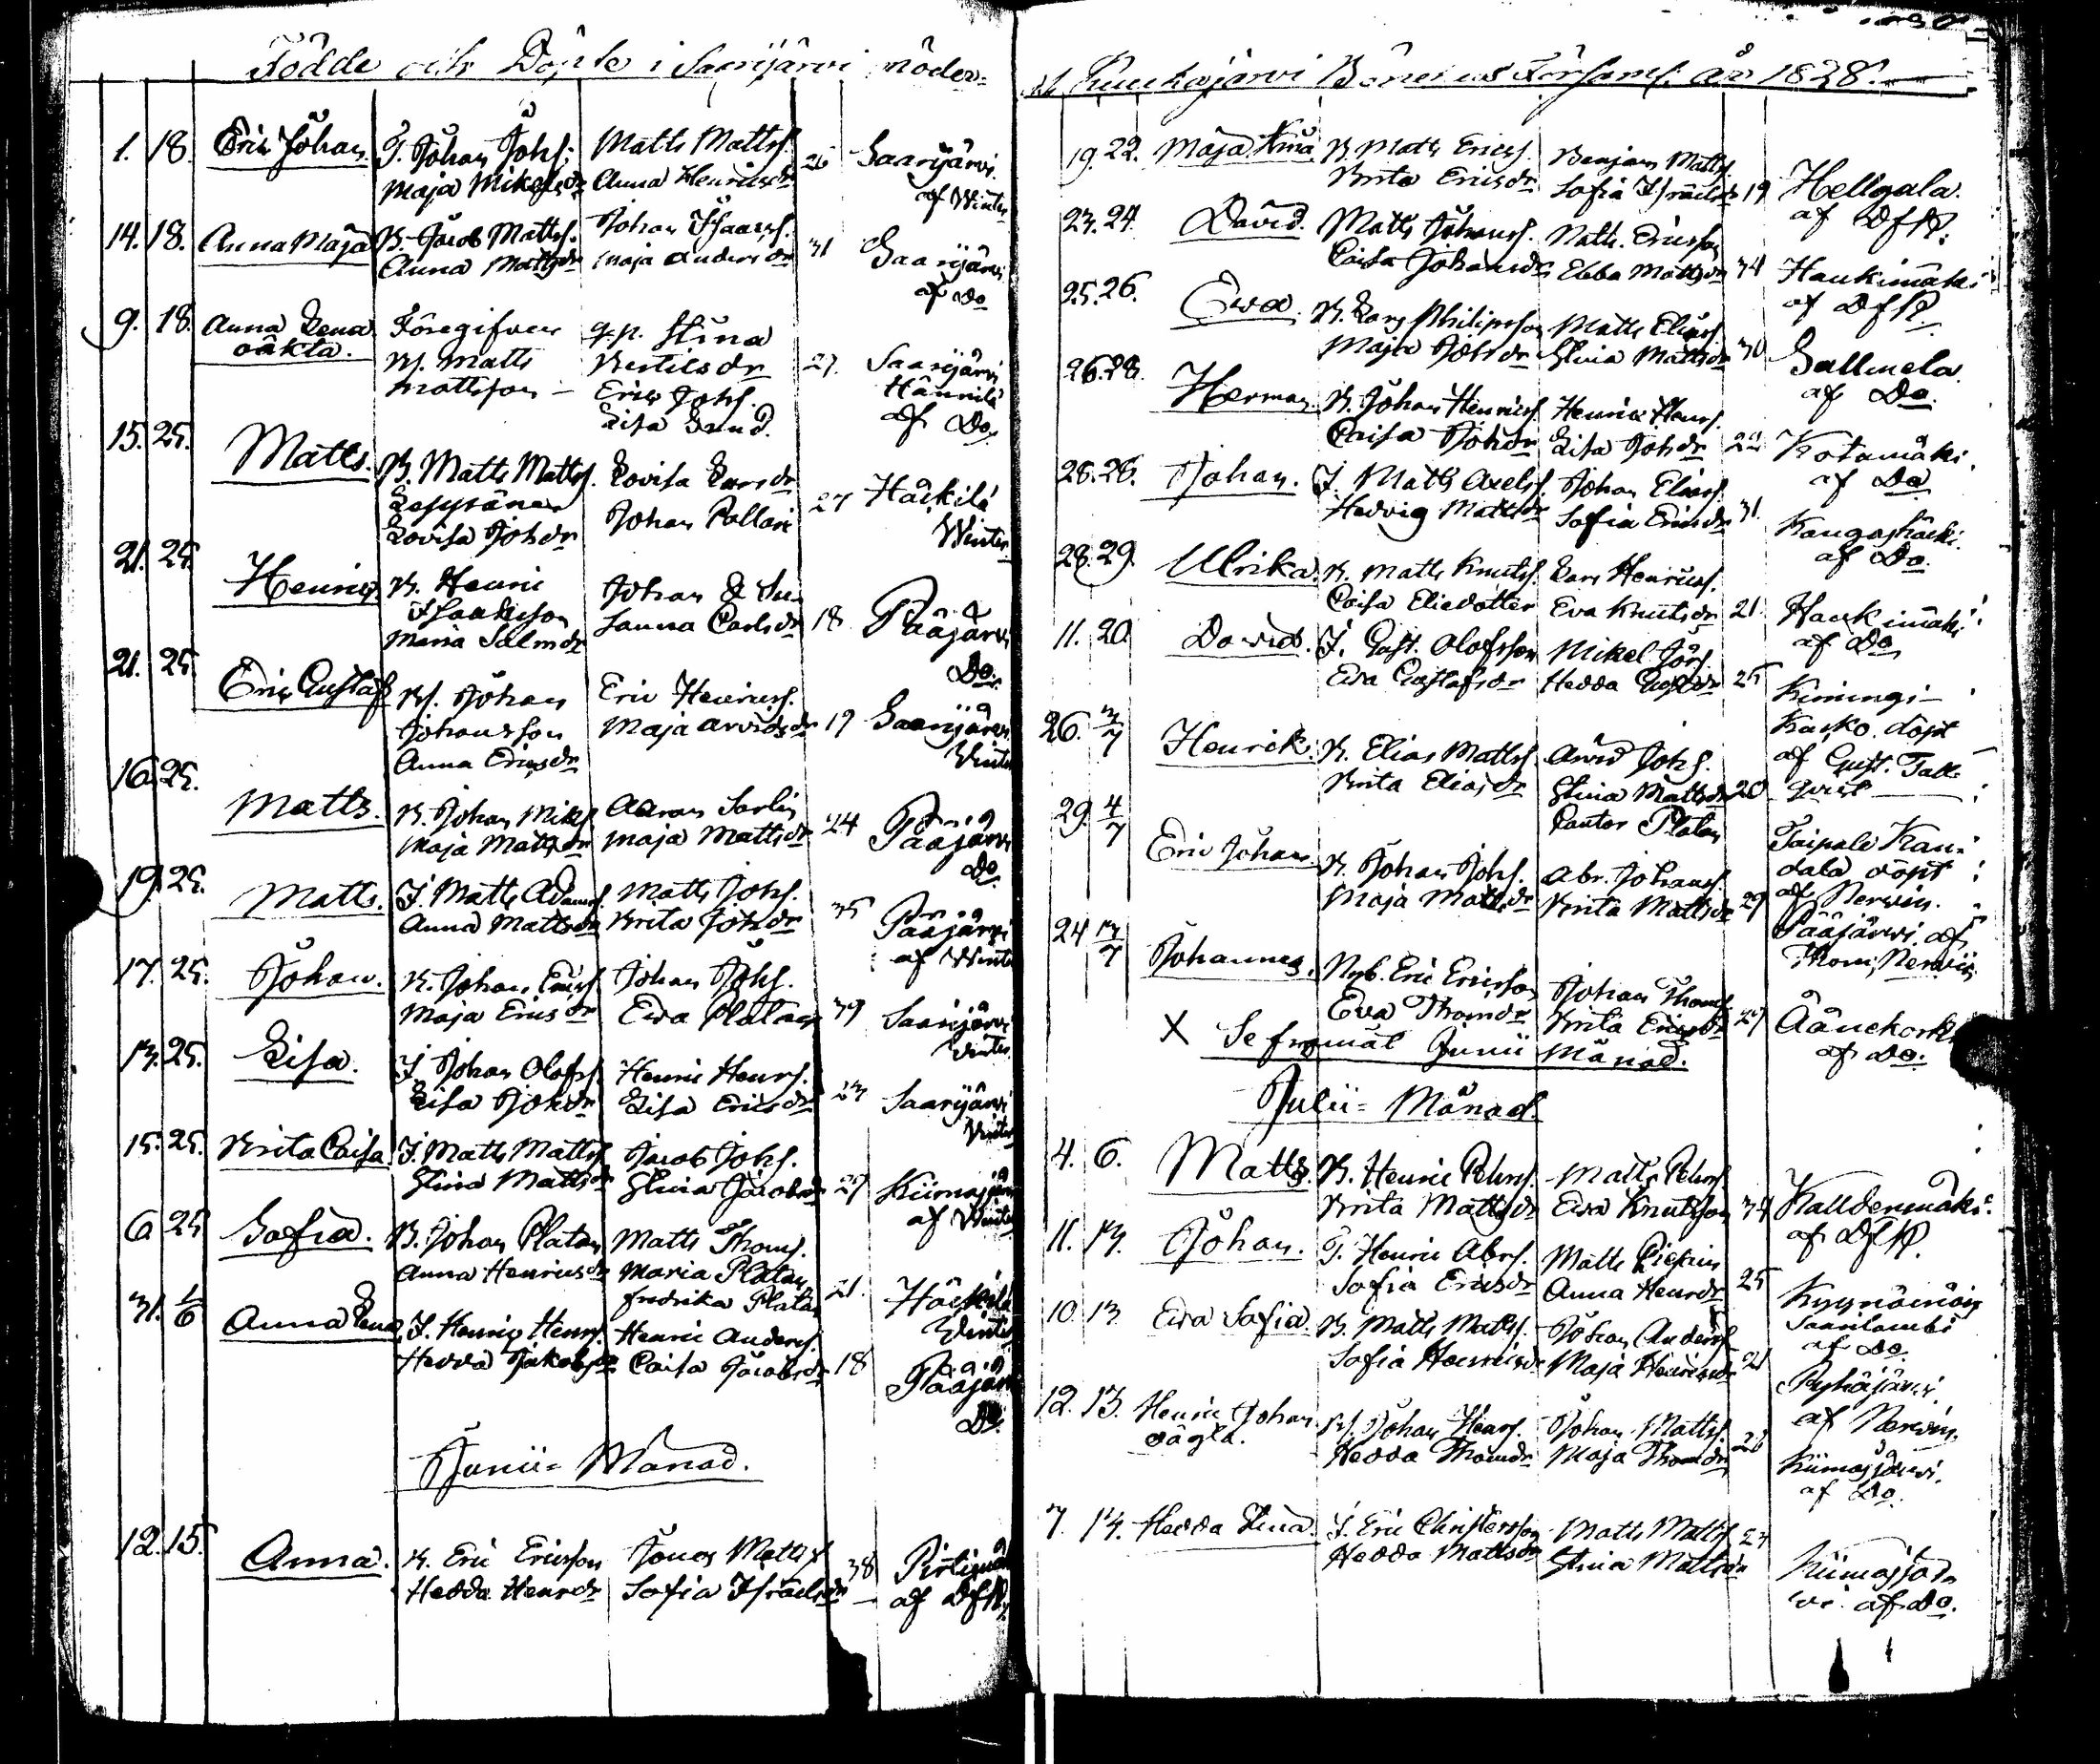 Födde och Döpte i Saarijärvi moder-
1. 18. Eric Johan. T. Johan Johs. Matts Matts. 26 Saarijärvi
Maja Mikelsdr Anna Henricsdr af Winter
14. 18. Anna Maja B. Jacob Matts. Johan Isaacs. 31 Saarijärvi
Anna Mattsdr Maja Andersdr af Do
9. 18. Anna Lena Föregifven q.p. Stina
oäkta. Matts Bertilsdr 27. Saarijärvi
Mattsson Eric Johs. Hännilä
Lisa Lund. af Do
15. 25. Matts. B. Matts Matts. Lovisa Larsdr
Leppänen Johan Pollari 27 Häckilä
Lovisa Johsdr Winter
21. 25. Henric B. Henric Johan & Su-
Isaksson sanna Carlsdr 18 Pääjärvi
Maria Salmdr Do.
21. 25. Eric Gustaf Johan Eric Henrics.
Johansson Maja Arvidsdr 19 Saarijärvi
Anna Ericsdr Winter
16. 25. Matts. B. Johan Mikels. Aaron Sarlin
Maja Mattsdr Maja Mattsdr 24 Pääjärvi
Do
19. 25. Matts. I. Matts Adams. Matts Johs. 35 Pääjärvi
Anna Mattsdr Brita Johsdr af Winter
17. 25. Johan. B. Johan Erics. Johan Johs.
Maja Ericsdr Ewa Platan 39 Saarijärvi
Winter
13. 25. Lisa. I. Johan Olofs. Henric Henrs.
Lisa Johsdr Lisa Ericsdr 23 Saarijärvi
Winter
15. 25. Brita Caisa I. Matts Matts. Jacob Johs.
Stina Mattsdr Stina Jacobsdr 27 Kiimajärvi
af Winter
6 25 Sofia. B. Johan Platan Matts Thoms.
Anna Henricsdr Maria Platan
Fredrika Platan 21. Häckilä
Winter
31. 1/6 Anna Lena I. Henric Henrs. Henric Anders.
Hedda Jakobsdr Caisa Jacobsdr 18 Pääjärvi
Do.
Junii= Månad.
12. 15. Anna. B. Eric Ericsson Jonas Matts. 38
Hedda Henrsdr Sofia Israelsdr af DfP.
Puuhajärvi Böneh. Församl. år 1828.
19. 22. Maja Stina B. Matts Erics. Benjam Matts.
Brita Ericsdr Sofia Israelsdr 19 Hellgala.
af DfP.
23. 24. David. Matts Johanss. Matts Ericsson
Caisa Johansdr Ebba Mattsdr 34 Haukimäki
af DfP.
25. 26. Ewa. B. Lars Philipsson Matts Elias.
Maja Johsdr Stina Mattsdr 30 Sallmela.
af Do.
26. 28. Herman B. Johan Henrics. Henric Hans.
Caisa Johsdr Lisa Johsdr 22 Kotamäki.
af Do
28. 28. Johan. I. Matts Axels. Johan Elias.
Hedvig Mattsdr Sofia Ericsdr 31. Kangashäcki.
af Do.
28. 29. Ulrika. B. Matts Knuts. Lars Henrics.
Caisa Eliedotter Eva Knutsdr 21. Haukimäki
af Do
11. 20. David. I. Gust. Olofsson Mikel Jörs.
Ewa Gustafsdr Hedda Gustdr 25 Kimingi-
26. 3/7 Henrik. B. Elias Matts. Arvid Johs. Kasko. döpt
Brita Eliasdr Stina Mattsdr 20 af Gust. Tall-
qvist
29. 4/7 Eric Johan. Cantor Platan Taipale Kan-
B. Johan Johs. Abr. Johanss. dala döpt
Maja Mattsdr Brita Mattsdr 29 af Nervin.
24 13/7 Johannes. Nyb. Eric Ericsson Johan Thoms. Pääjärvi. af
Eva Thomsdr Brita Ericsdr 27 Thom. Nerviis
X Se framåt Junii Månad. Äänekoski
af Do.
Julii= Månad.
4. 6. Matts. B. Henric Pehrs. Matts Pehrs.
Brita Mattsdr Ewa Knutsson 34 Kalldenmäki
af DfP.
11. 13. Johan. T. Henric Abrs. Matts
Sofia Ericsdr Anna Henrsdr 25
10. 13. Ewa Sofia. B. Matts Matts. Johan Anders. Saanlambi
Sofia Henricsdr Maja Henricsdr 21 af Do
12. 13. Henric Johan Johan Henrs. Johan Matts. 28 Pyhäjärvi
oägta. Hedda Thomsdr Maja Thomsdr af Nervin.
Kiimasjärvi.
af Do.
7. 13. Hedda Stina. I. Eric Christersson Matts Matts. 23
Hedda Mattsdr Stina Mattsdr Kiimasjär-
vi. af Do.